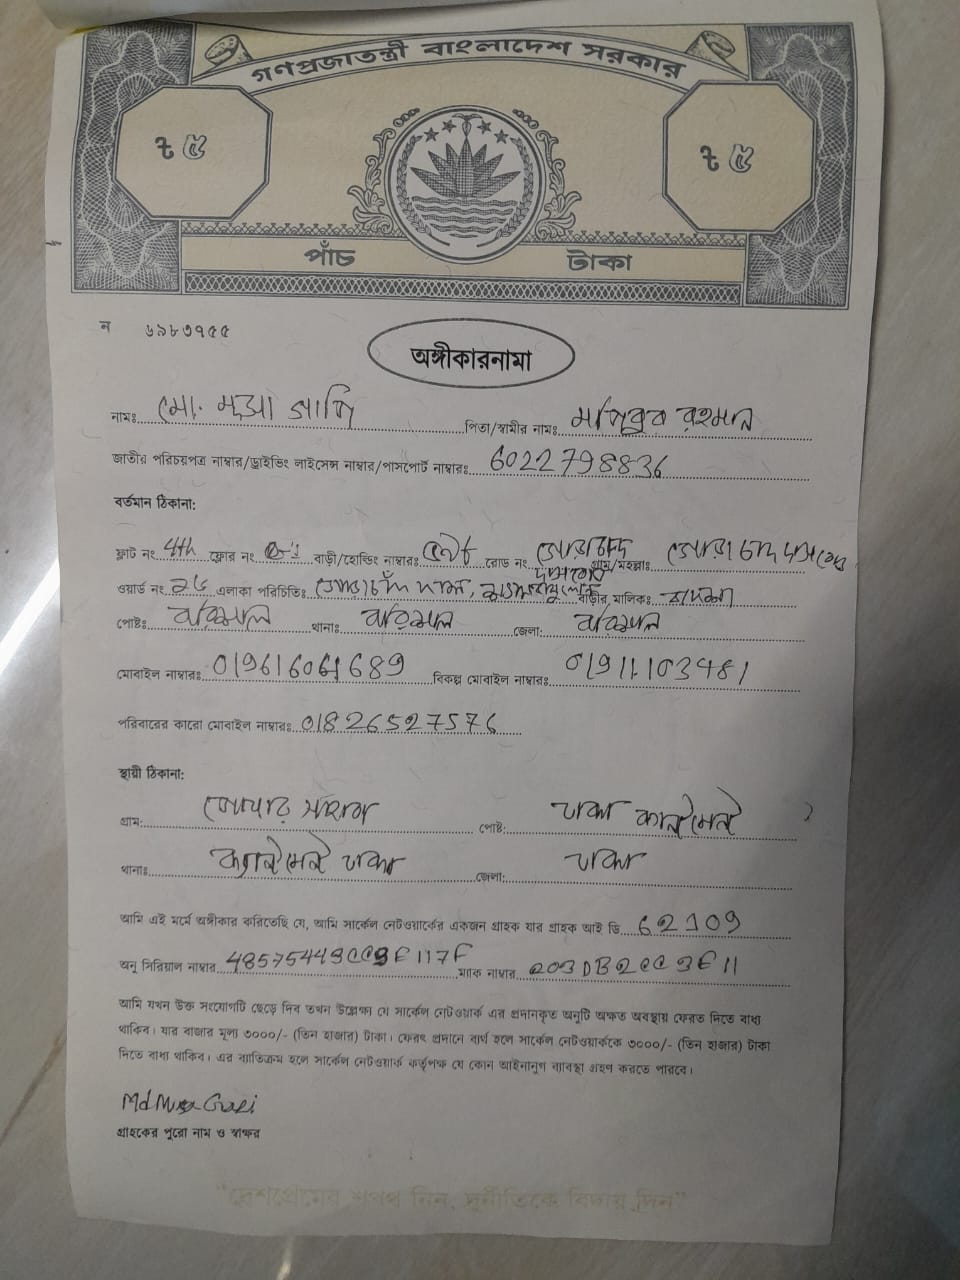 গণপ্রজাতন্ত্রী বাংলাদেশ সরকার
৳ ৫ ৳ ৫
পাঁচ টাকা
ন ৬৯৮৩৭৫৫
অঙ্গীকারনামা
নামঃ মো. মুসা গাজি পিতা/স্বামীর নামঃ রহমান
জাতীর পরিচয়পত্র নাম্বার/ড্রাইভিং লাইসেন্স নাম্বার/পাসপোর্ট নাম্বারঃ 6022798836
বর্তমান ঠিকানা:
ফ্লাট নং 4th ফ্লোর নং বাড়ী/হোল্ডিং নাম্বারঃ রোড নং গোরাচাঁদ গ্রাম/মহল্লাঃ গোরাচাদ দাস রোড
দাস রোড
ওয়ার্ড নং এলাকা পরিচিতিঃ গোরাচাঁদ দাস, বাড়ীর মালিকঃ
পোষ্টঃ বরিশাল থানাঃ বরিশাল জেলা: বরিশাল
মোবাইল নাম্বারঃ 019616061689 বিকল্প মোবাইল নাম্বারঃ
পরিবারের কারো মোবাইল নাম্বারঃ 01826527576
স্থায়ী ঠিকানা:
গ্রাম: পোষ্ট: ঢাকা
থানাঃ ঢাকা জেলা: ঢাকা
আমি এই মর্মে অঙ্গীকার করিতেছি যে, আমি সার্কেল নেটওয়ার্কের একজন গ্রাহক যার গ্রাহক আই ডি 62109
অনু সিরিয়াল নাম্বার 48575443CC9E117F ম্যাক নাম্বার 203DB2CC9E11
আমি যখন উক্ত সংযোগটি ছেড়ে দিব তখন উল্লেক্ষ্য যে সার্কেল নেটওয়ার্ক এর প্রদানকৃত অনুটি অক্ষত অবস্থায় ফেরত দিতে বাধ্য
থাকিব। যার বাজার মূল্য ৩০০০/- (তিন হাজার) টাকা। ফেরৎ প্রদানে ব্যর্থ হলে সার্কেল নেটওয়ার্ককে ৩০০০/- (তিন হাজার) টাকা
দিতে বাধ্য থাকিব। এর ব্যাতিক্রম হলে সার্কেল নেটওয়ার্ক কর্তৃপক্ষ যে কোন আইনানুগ ব্যাবস্থা গ্রহণ করতে পারবে।
Md Musa Gazi
গ্রাহকের পুরো নাম ও স্বাক্ষর
"দেশপ্রেমের শপথ নিন, দুর্নীতিকে বিদায় দিন"